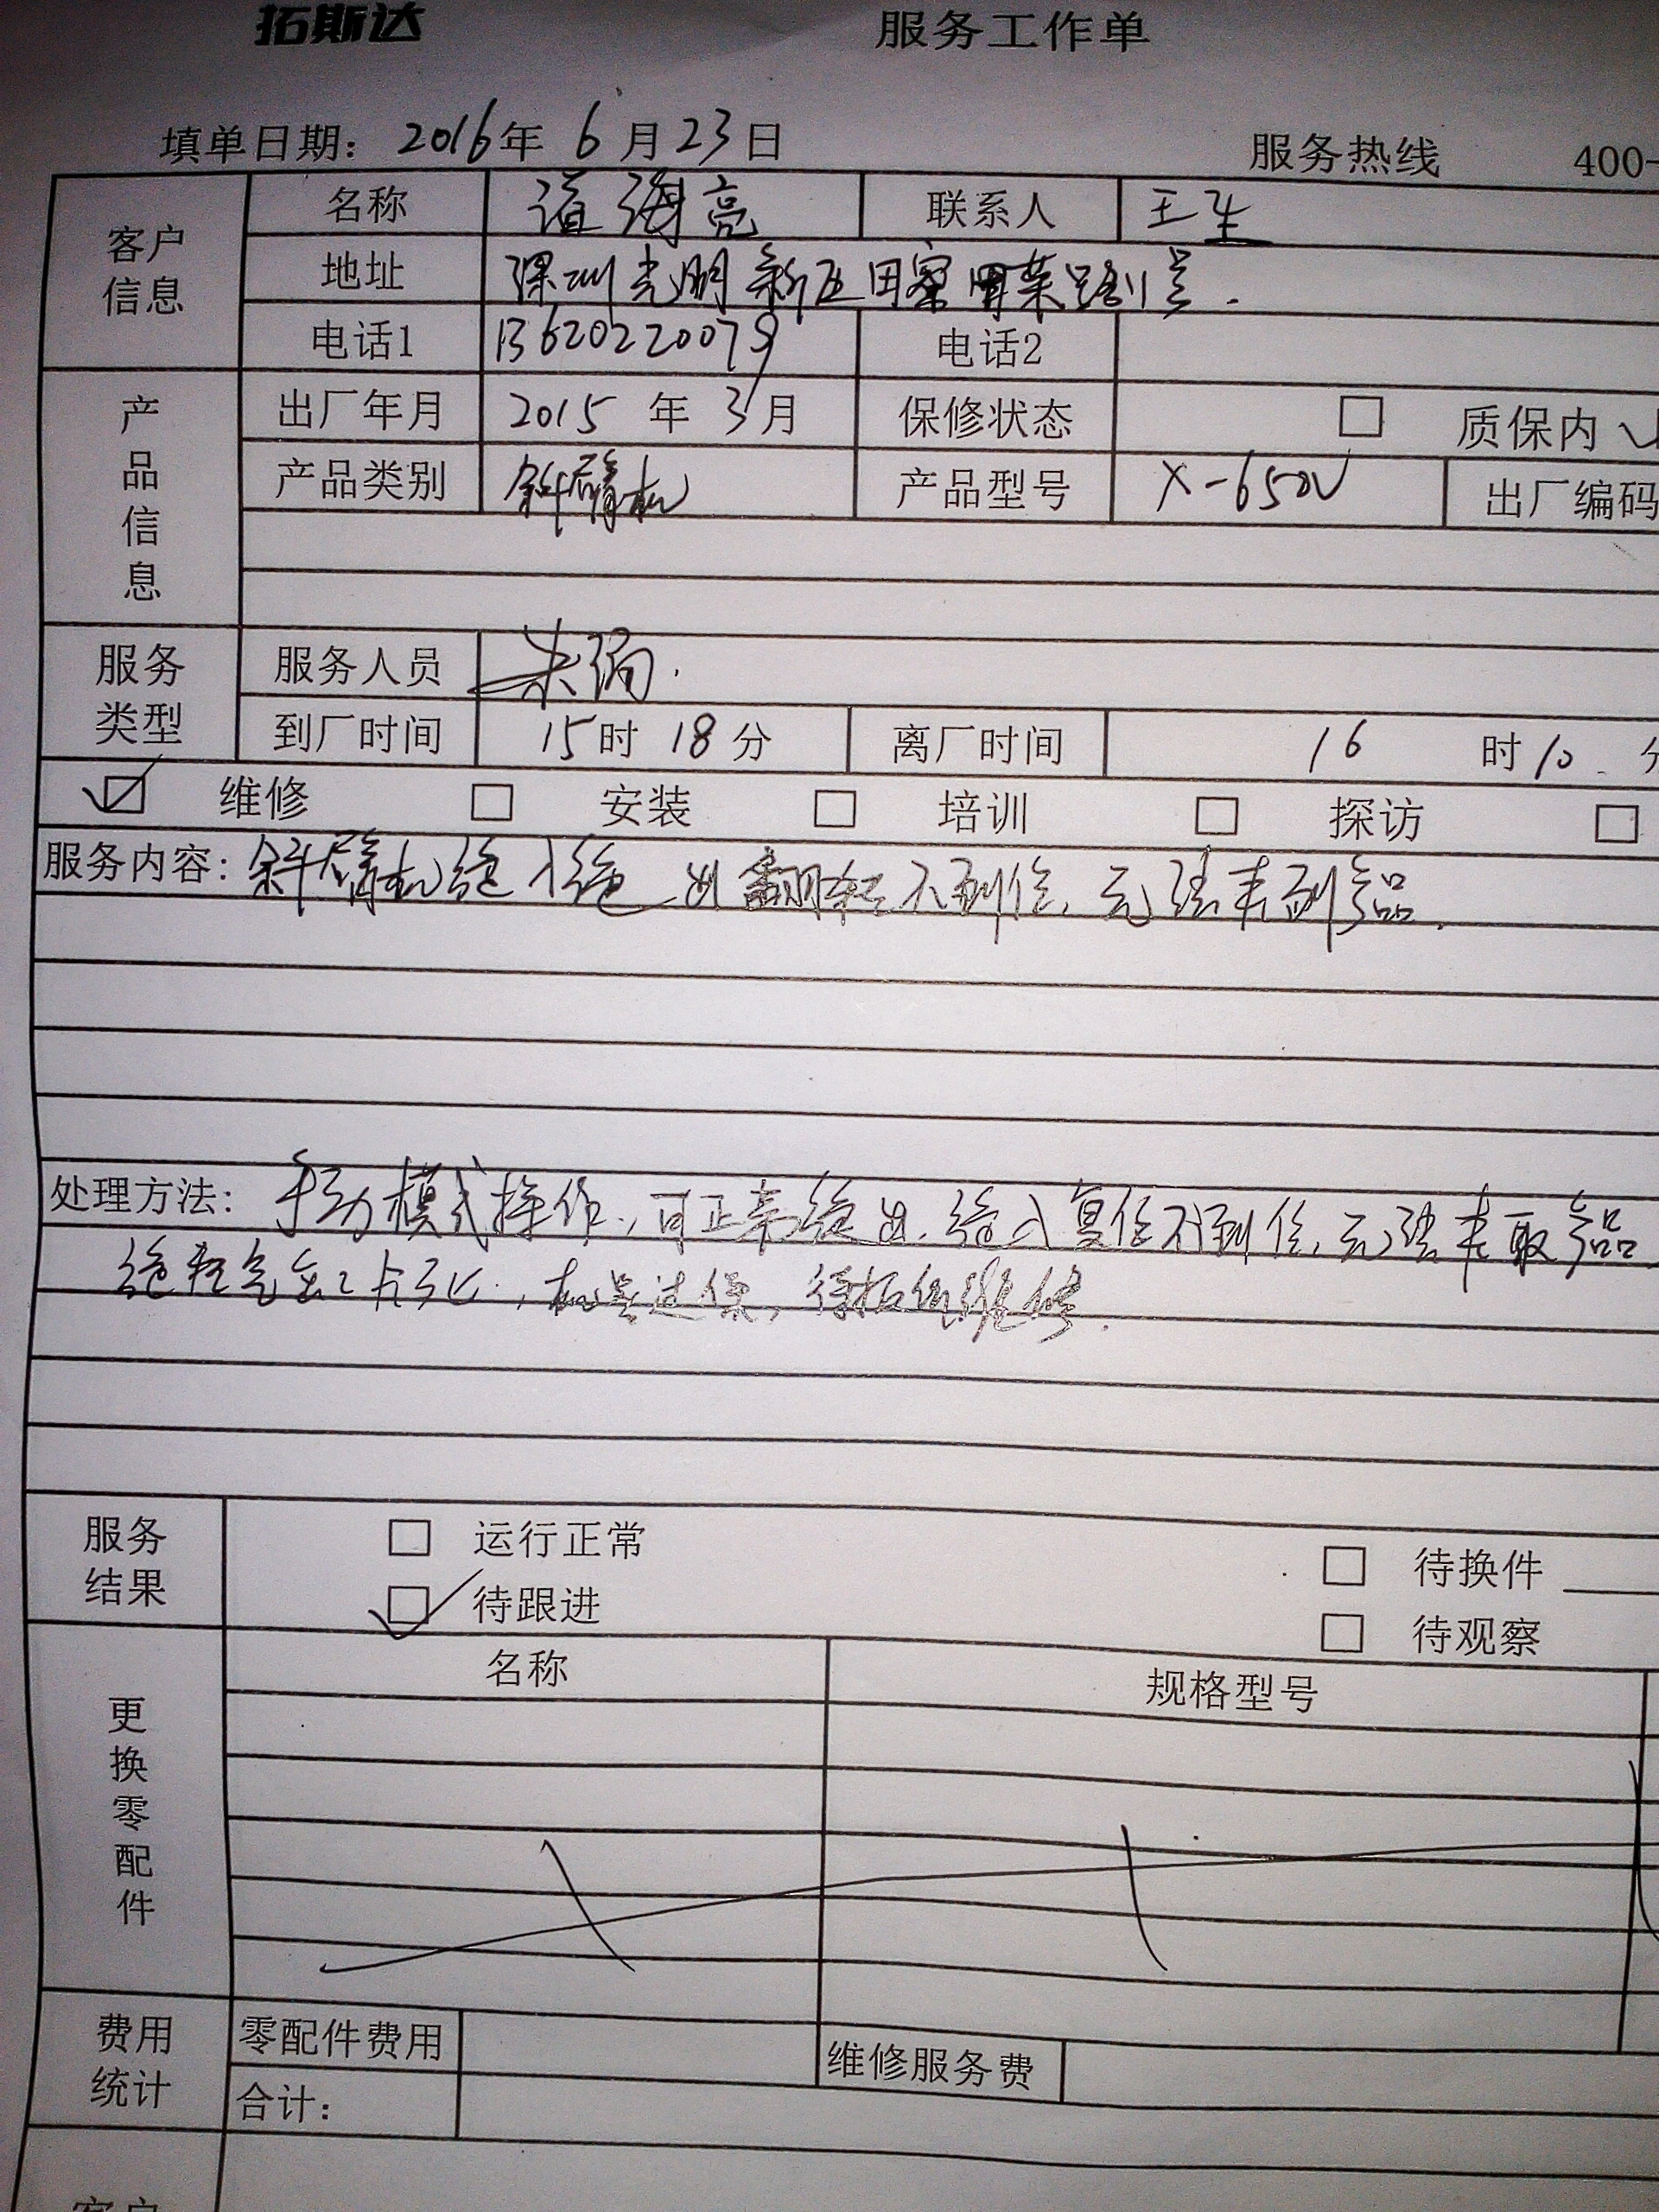 拓斯达 服务工作单
填单日期: 2016年 6月23日 服务热线 400-
客户信息 名称 道海亮 联系人 王生
地址 深圳光明新区田寮 路1号.
电话1 13620220079 电话2
产品信息 出厂年月 2015 年 3月 保修状态 □ 质保内
产品类别 斜臂机 产品型号 X-650V 出厂编码
服务类型 服务人员 朱
到厂时间 15时 18分 离厂时间 16 时10
☑ 维修 □ 安装 □ 培训 □ 探访 □
服务内容: 斜臂机 翻转不到位, 无法夹到产品.
处理方法: 手动模式操作, 可正常 出, 入复位不到位, 无法夹取产品
气缸卡死, 机器过保, 待 维修.
服务结果 □ 运行正常 □ 待换件
☑ 待跟进 □ 待观察
更换零配件 名称 规格型号
费用统计 零配件费用 维修服务费
合计:
客户